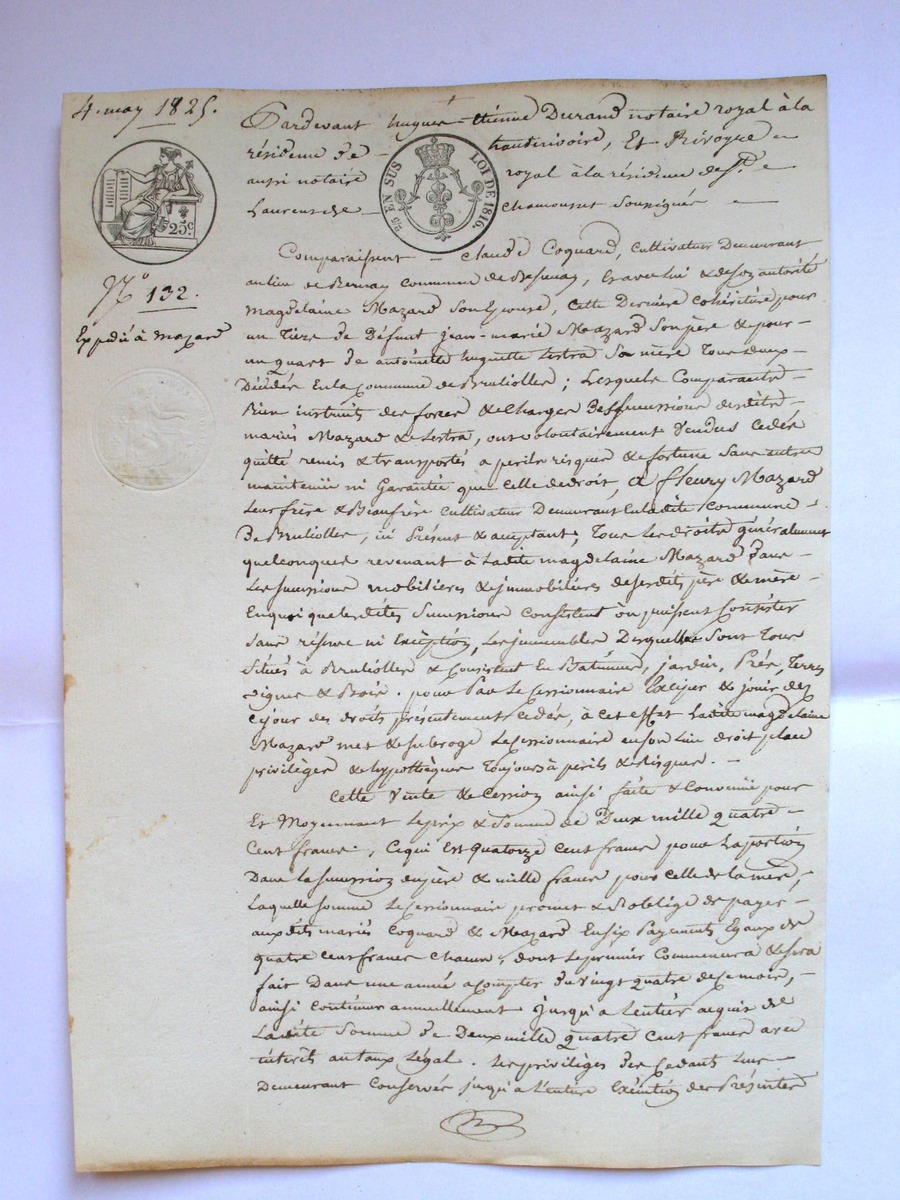 4. may 1825.
25c
25 EN SUS LOI DE 1816.
No 132.
Expédié à mazard
Pardevant hugues-étienne Durand notaire royal à la
résidence de hauterivoire, Et Privoque
aussi notaire royal à la résidence de St.
Laurent de Chamousset Soussignés
Comparaissent Claude Coquard, Cultivateur Demeurant
au lieu de Commune de Bessenay, & avec lui & de son autorité
magdelaine Mazard Son Epouse, Cette Dernière Cohéritière pour
un Tiers de Défunt Jean-marie Mazard Son père & pour
un quart de antoinette huguette Lestra Sa mère Tous deux
Décédés En la Commune de Brulioller; Lesquels Comparants
Bien instruits des forces & Charges Des Successions desdits
mariés Mazard & Lestra, ont volontairement Vendus Cedés
quitté remis & transportés a perils risques & fortune Sans autre
maintenüe ni Garantie que celle de droit, à fleury Mazard
Leur frère & Beaufrère Cultivateur Demeurant En ladite Commune
De Brulioller, ici Présent & acceptant; Tous Les droits généralement
quelconques revenant à Ladite magdelaine Mazard Dans
Les Successions mobilières & immobilières de sesdits père & mère
En quoi que lesdites Successions Consistent où puissent Consister
Sans réserve ni Exception, Les immeubles Desquelles Sont Tous
Situés à Brulioller & Consistent En Batiments, jardin, Prés, Terres
vignes & Bois. pour Par Le Cessionnaire & jouir dez
Cejour des droits présentement Cedés, à cet effet Ladite magdelaine
Mazard met & Subroge Le Cessionnaire en son Lieu droit place
privilèges & hypothèques Toujours à perils & Risques.
Cette Vente & Cession ainsi faite & Convenüe pour
Et Moyennant Le prix & Somme de Deux mille quatre
Cent francs, Ce qui Est quatorze Cent francs pour La portion
Dans la Succession du père & mille francs pour celle de la mère,
Laquelle Somme Le Cessionnaire promet & S'oblige de payer
auxdits mariés Coquard & Mazard En six Payements Egaux de
quatre Cent francs Chacun, dont Le premier Commencera & sera
fait Dans une année a compter Du Vingt quatre de ce mois,
ainsi Continuer annuellement jusqu'a Lentier acquit de
Ladite Somme de Deux mille quatre Cent francs avec
intérêts au taux Légal. Les privilèges des Cedants Leur
Demeurant Conservés jusqu'a Lentière Exécution des Présentes